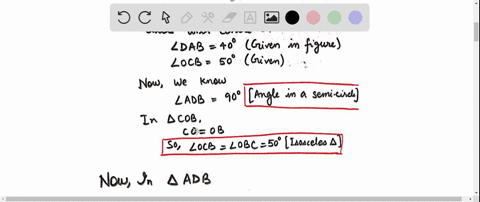 ∠DAB = 40° (Given in figure)
∠OCB = 50° (Given)
Now, we know
∠ADB = 90° [Angle in a semi-circle]
In ΔCOB,
CO = OB
So, ∠OCB = ∠OBC = 50° [Isosceles Δ]
Now, In Δ ADB